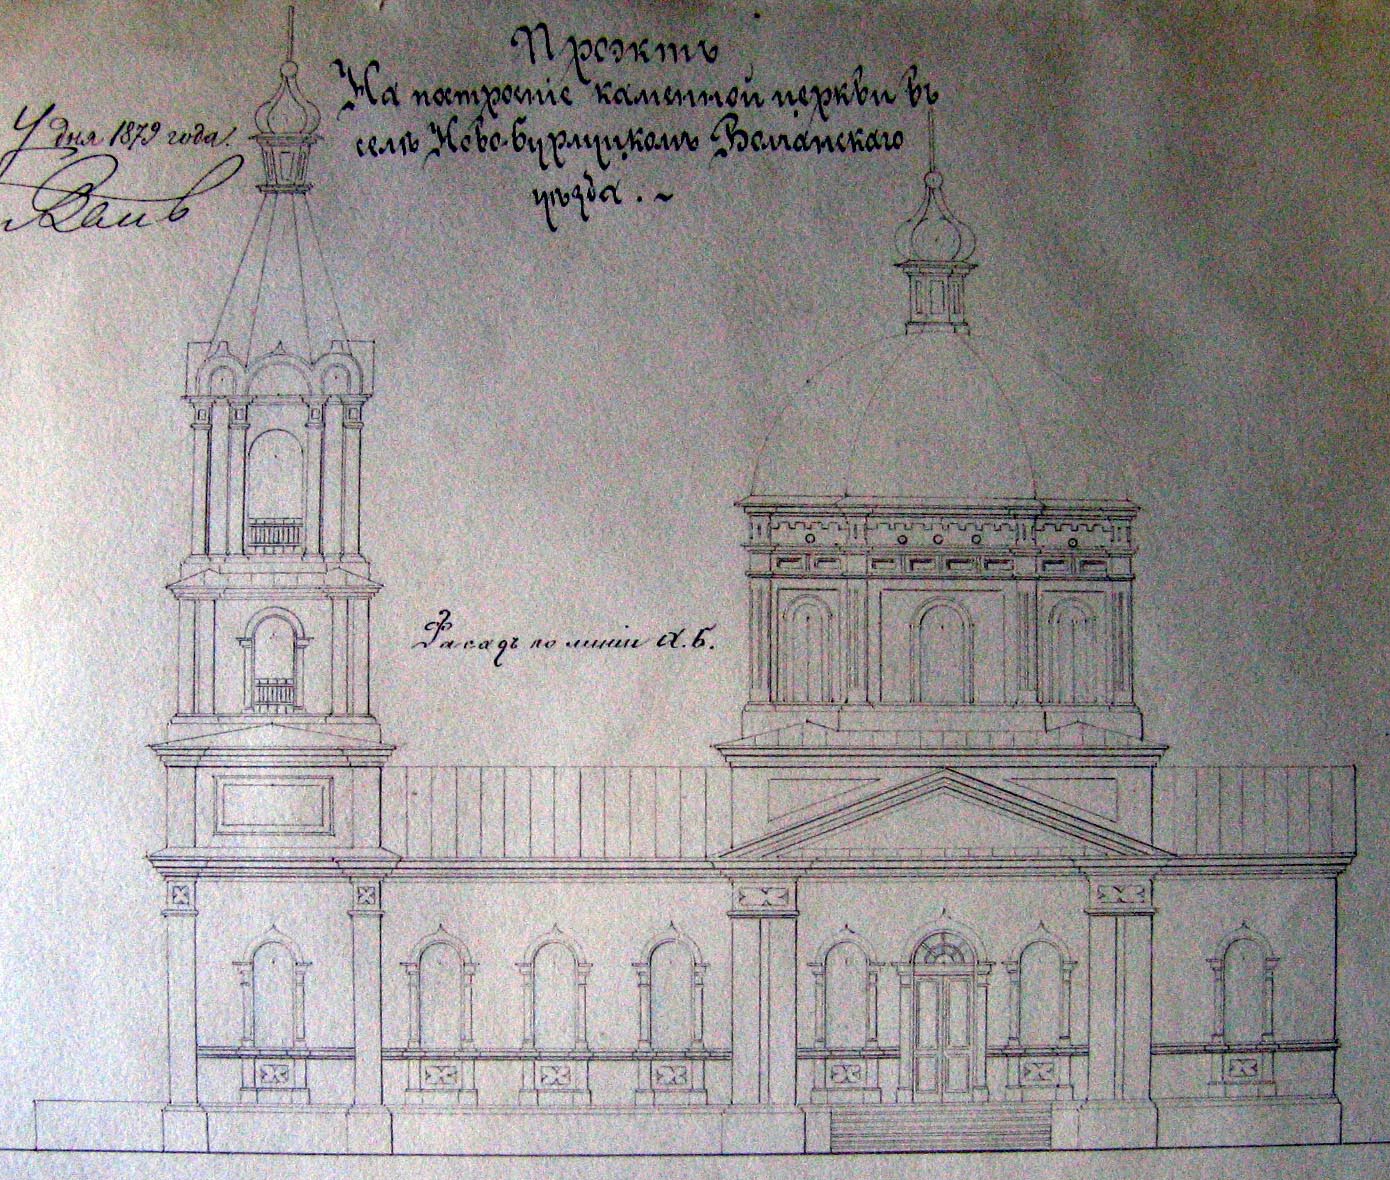 Проэктъ
На построеніе каменной церкви въ
селѣ Ново-Бурлуцкомъ Волчанскаго
уѣзда.
дня 1879 года.
Фасадъ по линіи А.Б.